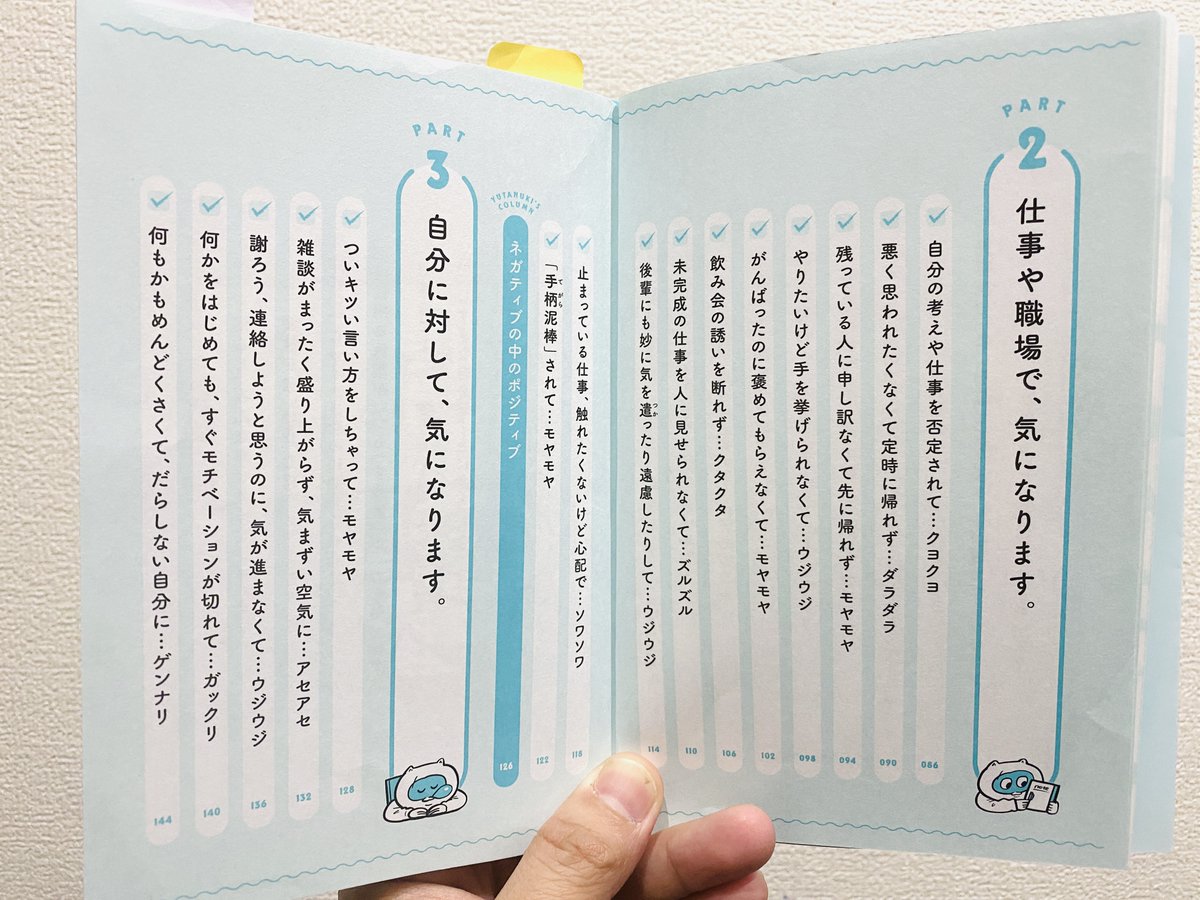 PART
2
仕事や職場で、気になります。
自分の考えや仕事を否定されて…クヨクヨ
086
悪く思われたくなくて定時に帰れず…ダラダラ
090
残っている人に申し訳なくて先に帰れず…モヤモヤ
094
やりたいけど手を挙げられなくて…ウジウジ
098
がんばったのに褒めてもらえなくて…モヤモヤ
102
飲み会の誘いを断れず…クタクタ
106
未完成の仕事を人に見せられなくて…ズルズル
110
後輩にも妙に気を遣ったり遠慮したりして…ウジウジ
つか
114
止まっている仕事、触れたくないけど心配で…ソワソワ
118
「手柄泥棒」されて…モヤモヤ
てがら
122
YUTANUKI'S
COLUMN
ネガティブの中のポジティブ
126
PART
3
自分に対して、気になります。
ついキツい言い方をしちゃって…モヤモヤ
128
雑談がまったく盛り上がらず、気まずい空気に…アセアセ
132
謝ろう、連絡しようと思うのに、気が進まなくて…ウジウジ
136
何かをはじめても、すぐモチベーションが切れて…ガックリ
140
何もかもめんどくさくて、だらしない自分に…ゲンナリ
144